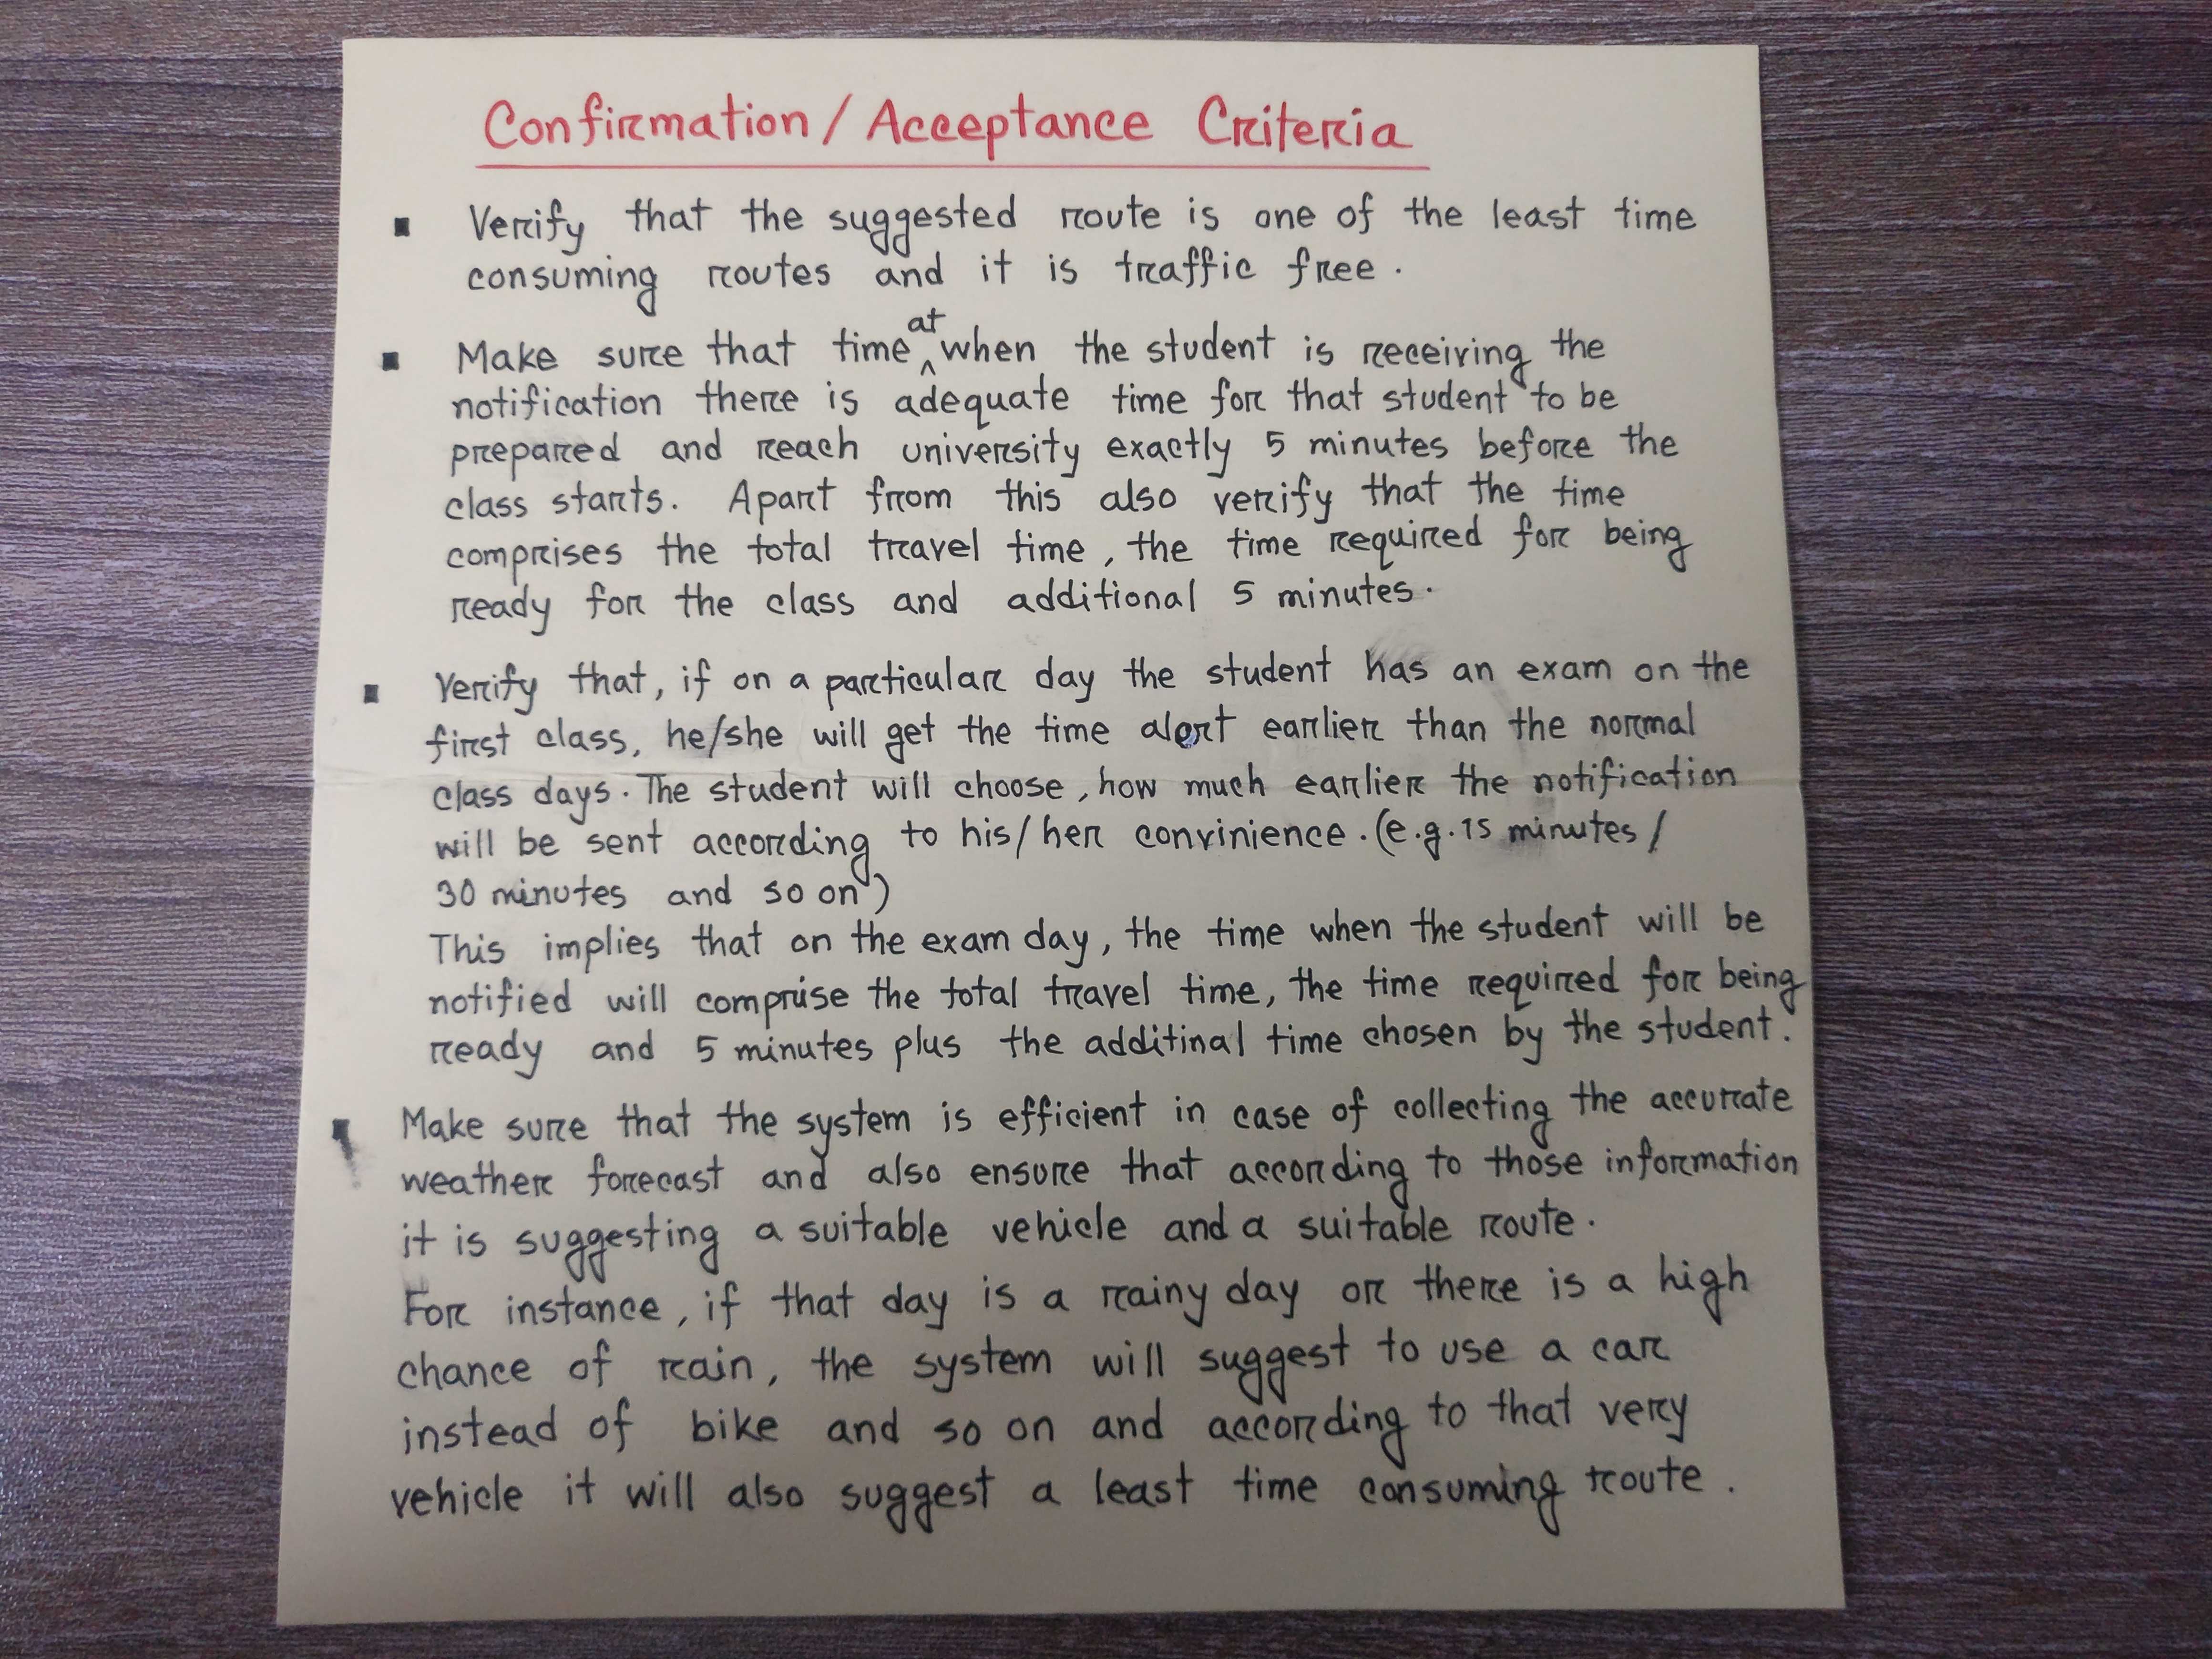 Confirmation / Acceptance Criteria
▪ Verify that the suggested route is one of the least time
consuming routes and it is traffic free.
▪ Make sure that time at when the student is receiving the
notification there is adequate time for that student to be
prepared and reach university exactly 5 minutes before the
class starts. Apart from this also verify that the time
comprises the total travel time, the time required for being
ready for the class and additional 5 minutes.
▪ Verify that, if on a particular day the student has an exam on the
first class, he/she will get the time alert earlier than the normal
class days. The student will choose, how much earlier the notification
will be sent according to his/her convinience. (e.g. 15 minutes /
30 minutes and so on)
This implies that on the exam day, the time when the student will be
notified will comprise the total travel time, the time required for being
ready and 5 minutes plus the additinal time chosen by the student.
▪ Make sure that the system is efficient in case of collecting the accurate
weather forecast and also ensure that according to those information
it is suggesting a suitable vehicle and a suitable route.
For instance, if that day is a rainy day or there is a high
chance of rain, the system will suggest to use a car
instead of bike and so on and according to that very
vehicle it will also suggest a least time consuming route.